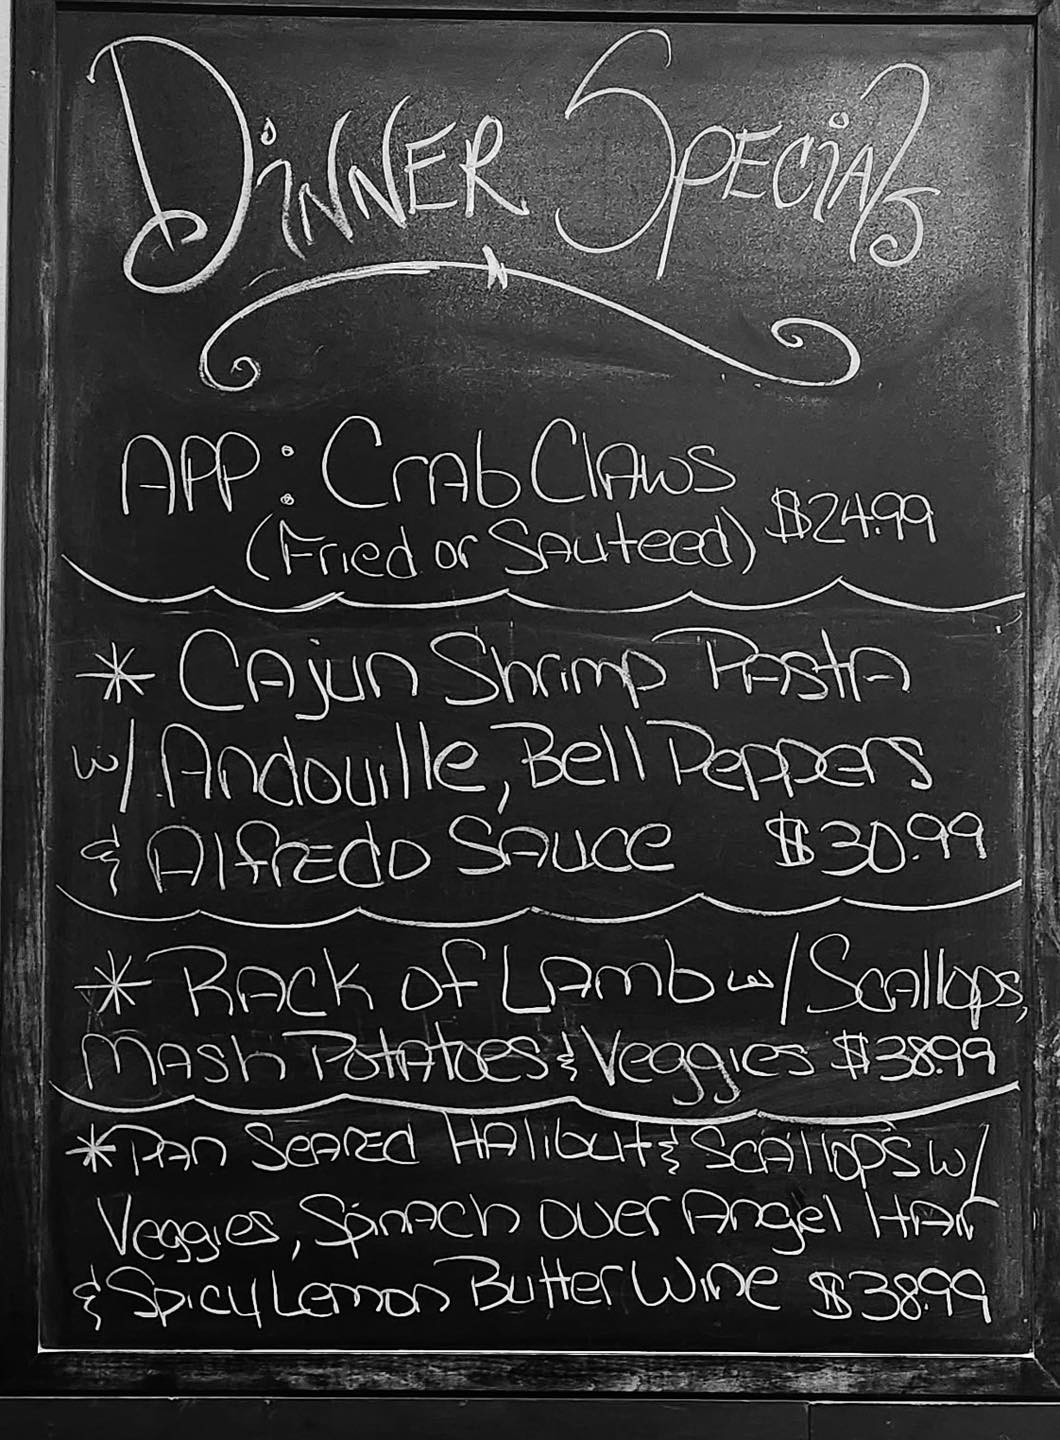 Dinner Specials
App: Crab Claws
(Fried or Sauteed) $24.99
* Cajun Shrimp Pasta
w/ Andouille, Bell Peppers
& Alfredo Sauce $30.99
* Rack of Lamb w/ Scallops,
Mash Potatoes & Veggies $38.99
* Pan Seared Halibut & Scallops w/
Veggies, Spinach over Angel Hair
& Spicy Lemon Butter Wine $38.99